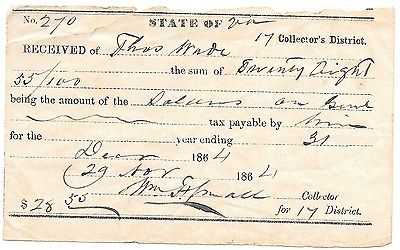 No. 270 STATE OF Va
17 Collector's District.
RECEIVED of Thos Wade
the sum of Twenty Eight
55/100
being the amount of the on
tax payable by him
for the year ending 31
Decr 1864
29 Nov 1864
Collector
$ 28 55 for 17 District.